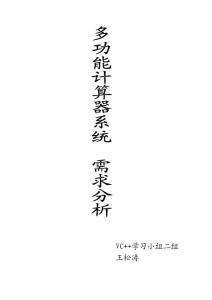 多功能计算器系统 需求分析
VC++学习小组二组
王松涛